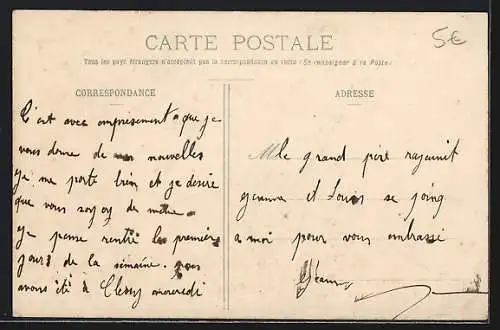 CARTE POSTALE
5€
Tous les pays étrangers n'acceptent pas la correspondance au recto (Se renseigner à la Poste)
CORRESPONDANCE
C'est avec empressement que je
vous donne de nouvelles
je me porte bien et je desire
que vous soyez de même
je pense rentré les premier
jours de la semaine. nous
avons été à Clessy mercredi
ADRESSE
le grand père
et Louis se joing
a moi pour vous embrassé